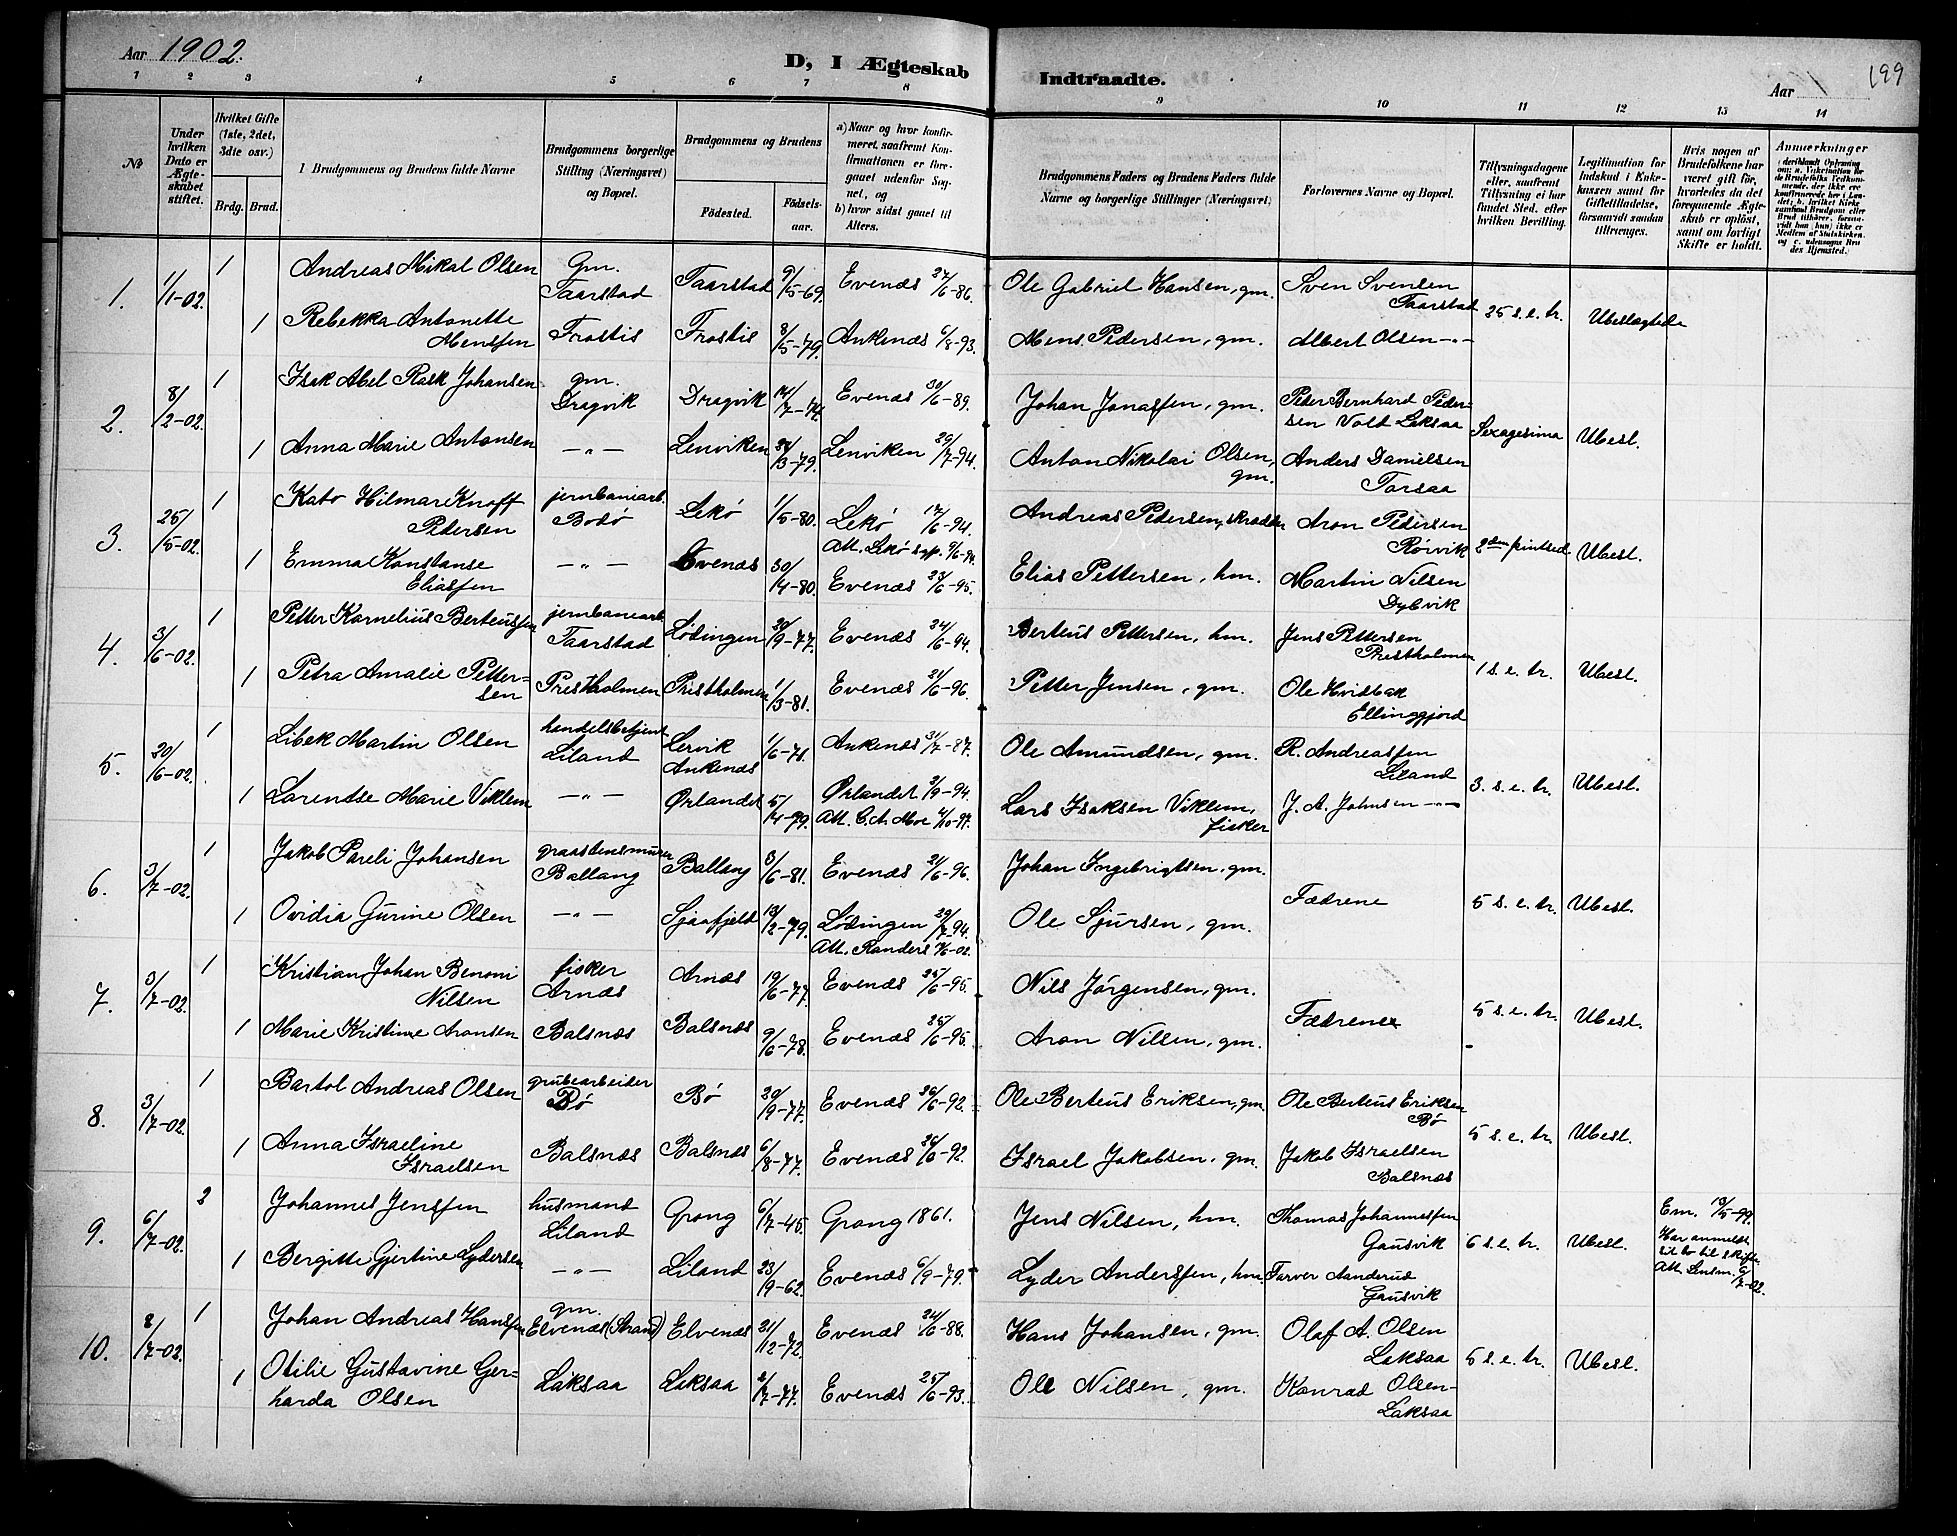 Aar 1902.
D, I Ægteskab
Indtraadte.
Aar
199
1 2 3 4 5 6 7 8 9 10 11 12 13 14
No
Under hvilken Dato er Ægteskabet stiftet.
Hvilket Gifte (1ste, 2det, 3die osv.)
Brdg. Brud.
Brudgommens og Brudens fulde Navne
Brudgommens borgerlige Stilling (Næringsvei) og Bopæl.
Brudgommens og Brudens
Fødested.
Fødselsaar.
a) Naar og hvor konfirmeret, saafremt Konfirmationen er foregaaet udenfor Sognet, og
b) hvor sidst gaaet til Alters.
Brudgommens Faders og Brudens Faders fulde Navne og borgerlige Stillinger (Næringsvei)
Forlovernes Navne og Bopæl.
Tillysningsdagene eller, saafremt Tillysning ei har fundet Sted, efter hvilken Bevilling.
Legitimation for Indskud i Enkekassen samt for Giftetilladelse, forsaavidt saadan tiltrænges.
Hvis nogen af Brudefolkene har været gift før, hvorledes da det foregaaende Ægteskab er opløst, samt om lovligt Skifte er holdt.
Anmærkninger
1. 1/1-02. 1 Andreas Mikal Olsen gm. Taarstad Taarstad 9/5-69. Evenæs 27/6-86. Ole Gabriel Hansen, gm. Sven Svensen Taarstad 25 s.e.tr. Ubeslægtede
1 Rebekka Antonette Monssen Frostis Frostis 8/5-79. Ankenæs 6/8-93. Mons Pedersen, gm. Albert Olsen -"-
2. 8/2-02. 1 Isak Abel Rask Johansen gm. Dragvik Dragvik 14/7-74. Evenæs 30/6-89. Johan Jonassen, gm. Peder Bernhard Pedersen Vold Laksaa Sexagesima Ubesl.
1 Anna Marie Antonsen -"- Lenviken 24/3-79. Lenviken 29/7-94. Anton Nikolai Olsen, gm. Anders Danielsen Forsaa
3. 25/5-02. 1 Kato Hilmar Knoff Petersen jernbanearb. Bodø Lekø 1/5-80. Lekø 17/6-94. Andreas Petersen, skrædder Aron Pedersen Rørvik 2den pintsed. Ubesl.
Att. Lekø sgp.
1 Emma Konstanse Eliassen -"- Evenæs 30/4-80. Evenæs 23/6-95. Elias Pettersen, hm. Martin Nilsen Dybvik
4. 3/6-02. 1 Petter Kornelius Berteussen jernbanearb. Taarstad Lødingen 29/9-77. Evenæs 24/6-94. Berteus Pettersen, hm. Jens Pettersen Prestholmen 1 s.e.tr. Ubesl.
1 Petra Amalie Pettersen Prestholmen Prestholmen 1/3-81. Evenæs 21/6-96. Petter Jensen, gm. Ole Hvidbak Ellinggjord
5. 20/6-02. 1 Libek Martin Olsen handelsbetjent Liland Lervik Ankenæs 1/6-71. Ankenæs 31/7-87. Ole Amundsen, gm. R. Andreassen Liland 3. s.e.tr. Ubesl.
1 Larentse Marie Viklem -"- Ørlandet 5/4-79. Ørlandet 2/9-94. Lars Isaksen Viklem, fisker J. A. Johnsen -"-
Att. C. A. Moe
6. 3/7-02. 1 Jakob Pareli Johansen graastensmurer Ballang Ballang 3/6-81. Evenæs 21/6-96. Johan Ingebrigtsen, gm. Fædrene 5 s.e.tr. Ubesl.
1 Ovidia Gurine Olsen -"- Sjaafjeld 13/2-79. Lødingen 29/7-94. Ole Sjursen, gm.
Att. Randers
7. 3/7-02. 1 Kristian Johan Benoni Nilsen fisker Arnæs Arnæs 19/6-77. Evenæs 25/6-95. Nils Jørgensen, gm. Fædrene 5 s.e.tr. Ubesl.
1 Marie Kristine Aronsen Balsnæs Balsnæs 9/6-78. Evenæs 25/6-95. Aron Nilsen, gm.
8. 3/7-02. 1 Bartol Andreas Olsen grubearbeider Bø Bø 20/9-77. Evenæs 26/6-92. Ole Berteus Eriksen, gm. Ole Berteus Eriksen Bø 5 s.e.tr. Ubesl.
1 Anna Israeline Israelsen Balsnæs Balsnæs 6/8-77. Evenæs 26/6-92. Israel Jakobsen, gm. Jakob Israelsen Balsnæs
9. 6/7-02. 2 Johannes Jenssen husmand Liland Grong 6/7-45. Grong 1861. Jens Nilsen, hm. Thomas Johannessen Gausvik 6 s.e.tr. Ubesl. Em. 13/5-99.
Har anmeldt sit bo til skifte. Att. Lensm. 6/7-02.
1 Bergitte Gjertine Lydersen -"- Liland 23/9-62. Evenæs 6/9-79. Lyder Anderssen, hm. Farver Aanderud Gausvik
10. 8/7-02. 1 Johan Andreas Hanssen gm. Elvenæs (Strand) Elvenæs 21/12-72. Evenæs 24/6-88. Hans Johansen, gm. Olaf A. Olsen Laksaa 5 s.e.tr. Ubesl.
1 Otilie Gustavine Gerharda Olsen Laksaa Laksaa 2/7-77. Evenæs 25/6-93. Ole Nilsen, gm. Konrad Olsen Laksaa